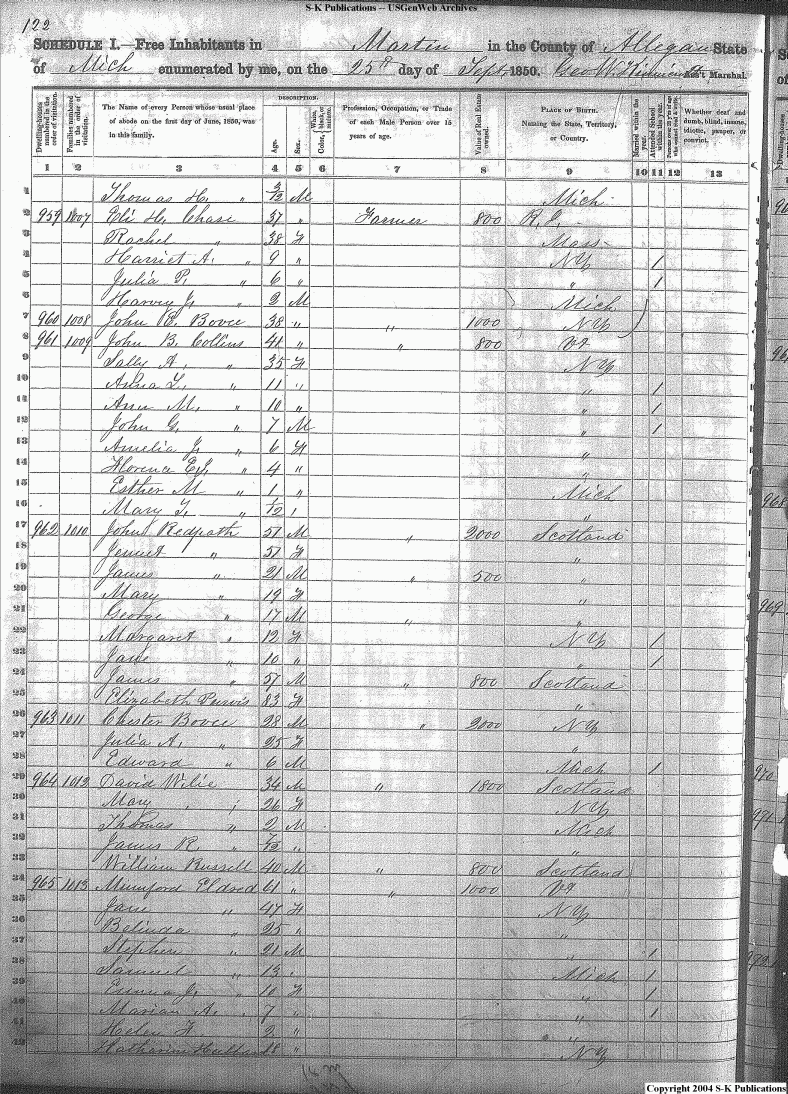 S-K Publications -- USGenWeb Archives
122
SCHEDULE I.—Free Inhabitants in Martin in the County of Allegan State
of Mich enumerated by me, on the 25th day of Sept. 1850. Geo W. Ass't Marshal.
Dwelling-houses numbered in the order of visitation. Families numbered in the order of visitation. The Name of every Person whose usual place of abode on the first day of June, 1850, was in this family. DESCRIPTION. Age. Sex. Color, White, black, or mulatto. Profession, Occupation, or Trade of each Male Person over 15 years of age. Value of Real Estate owned. PLACE OF BIRTH. Naming the State, Territory, or Country. Married within the year. Attended School within the year. Persons over 20 y'rs of age who cannot read & write. Whether deaf and dumb, blind, insane, idiotic, pauper, or convict.
1 2 3 4 5 6 7 8 9 10 11 12 13
1 Thomas H. " 3/12 M Mich
2 959 1007 Eli H. Chase 37 " Farmer 800 R.I.
3 Rachel " 38 F Mass
4 Harriet A. " 9 " NY 1
5 Julia P. " 6 " " 1
6 Harvey J. " 2 M Mich
7 960 1008 John B. Bovee 38 " " 1000 NY
8 961 1009 John B. Collins 41 " " 800 Vt
9 Sally A. " 35 F NY
10 Anna L. " 11 " " 1
11 Ann M. " 10 " " 1
12 John G. " 7 M " 1
13 Amelia J. " 6 F "
14 Florence E.J. " 4 " "
15 Esther M " 1 " Mich
16 Mary L. " /12 " "
17 962 1010 John Redpath 51 M " 2000 Scotland
18 Jennet " 51 F "
19 James " 21 M " 500 "
20 Mary " 19 F "
21 George " 17 M " "
22 Margaret " 12 F NY 1
23 Jane " 10 " " 1
24 James " 57 M " 800 Scotland
25 Elizabeth Purvis 83 F "
26 963 1011 Chester Bovee 28 M " 2000 NY
27 Julia A. " 25 F "
28 Edward " 6 M Mich 1
29 964 1012 David Wilie 34 M " 1800 Scotland
30 Mary " 26 F NY
31 Thomas " 2 M Mich
32 James R. " 7/12 " "
33 William Russell 40 M " 800 Scotland
34 965 1013 Mumford Eldred 61 " " 1000 Vt
35 Jane " 47 F NY
36 Belinda " 25 " "
37 Stephen " 21 M " 1
38 Samuel " 13 " Mich 1
39 Emma J. " 10 F " 1
40 Marian A. " 7 " " 1
41 Helen F. " 2 " "
42 18 " NY
Copyright 2004 S-K Publications